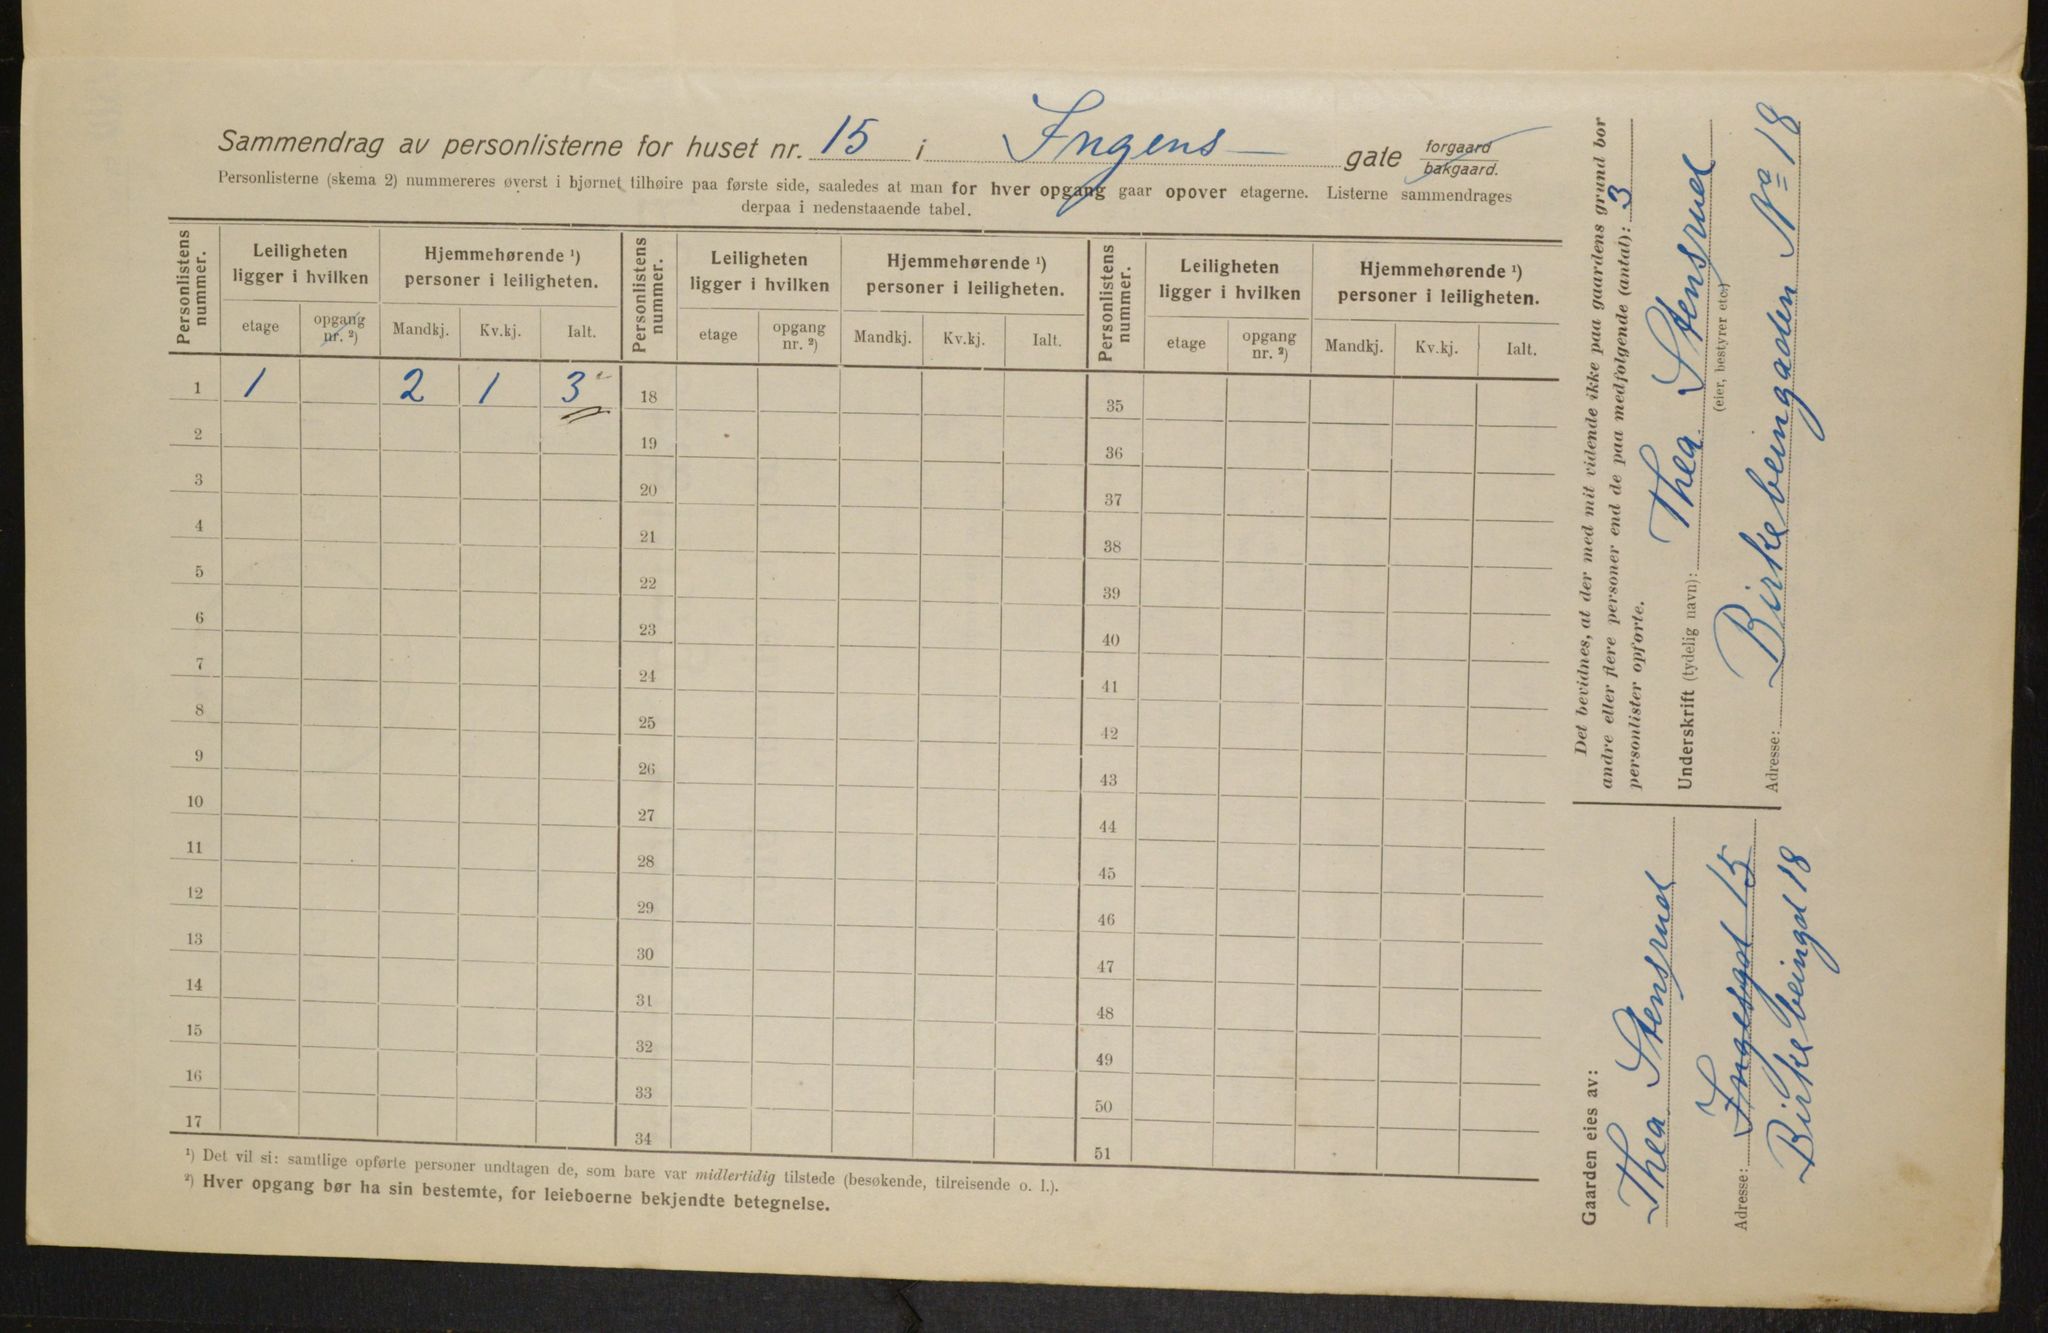 Sammendrag av personlisterne for huset nr. 15 i Ingens gate forgaard bakgaard.
Personlisterne (skema 2) nummereres øverst i hjørnet tilhøire paa første side, saaledes at man for hver opgang gaar opover etagerne. Listerne sammendrages
derpaa i nedenstaaende tabel.
Personlistens nummer. Leiligheten ligger i hvilken Hjemmehørende ¹) personer i leiligheten. Personlistens nummer. Leiligheten ligger i hvilken Hjemmehørende ¹) personer i leiligheten. Personlistens nummer. Leiligheten ligger i hvilken Hjemmehørende ¹) personer i leiligheten.
etage opgang nr. ²) Mandkj. Kv.kj. Ialt. etage opgang nr. ²) Mandkj. Kv.kj. Ialt. etage opgang nr. ²) Mandkj. Kv.kj. Ialt.
1 1 2 1 3 18 35
2 19 36
3 20 37
4 21 38
5 22 39
6 23 40
7 24 41
8 25 42
9 26 43
10 27 44
11 28 45
12 29 46
13 30 47
14 31 48
15 32 49
16 33 50
17 34 51
¹) Det vil si: samtlige opførte personer undtagen de, som bare var midlertidig tilstede (besøkende, tilreisende o. l.).
²) Hver opgang bør ha sin bestemte, for leieboerne bekjendte betegnelse.
Det bevidnes, at der med mit vidende ikke paa gaardens grund bor
andre eller flere personer end de paa medfølgende (antal): 3
personlister opførte.
Underskrift (tydelig navn): Thea Stensrud
(eier, bestyrer etc.)
Adresse: Birkebeingaden No 18
Gaarden eies av:
Thea Stensrud
Adresse: Ingesgd 15
Birkebeingd 18